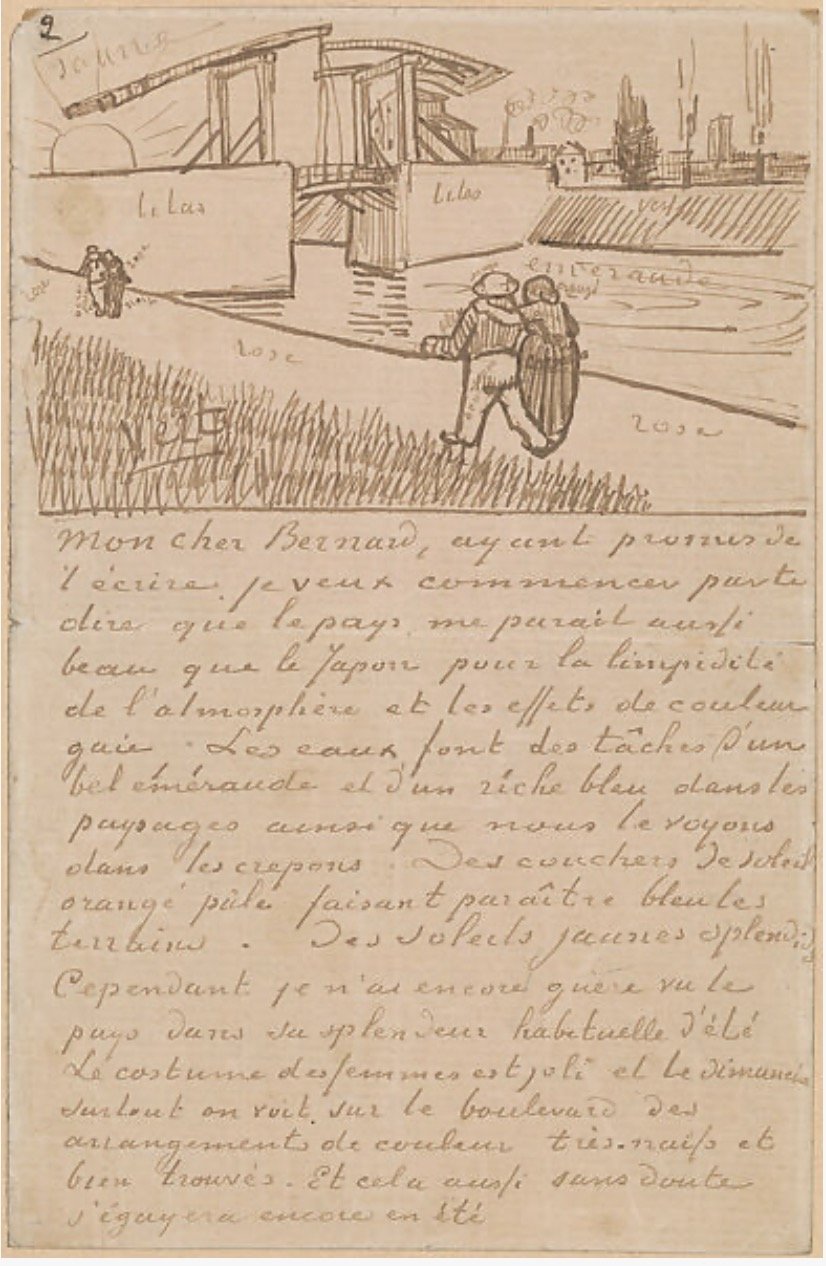 2
jaune
lilas
lilas
vert
emeraude
rose
rose
vert
rose
Mon cher Bernard, ayant promis de
t'écrire je veux commencer par te
dire que le pays me parait aussi
beau que le Japon pour la limpidité
de l'atmosphère et les effets de couleur
gaie. Les eaux font des tâches d'un
bel émeraude et d'un riche bleu dans les
paysages ainsi que nous le voyons
dans les crepons. Des couchers de soleil
orangé pâle faisant paraître bleu les
terrains. Des soleils jaunes splendides
Cependant je n'ai encore guère vu le
pays dans sa splendeur habituelle d'été
Le costume des femmes est joli et le dimanche
surtout on voit sur le boulevard des
arrangements de couleur très naifs et
bien trouvés. Et cela aussi sans doute
s'égayera encore en été